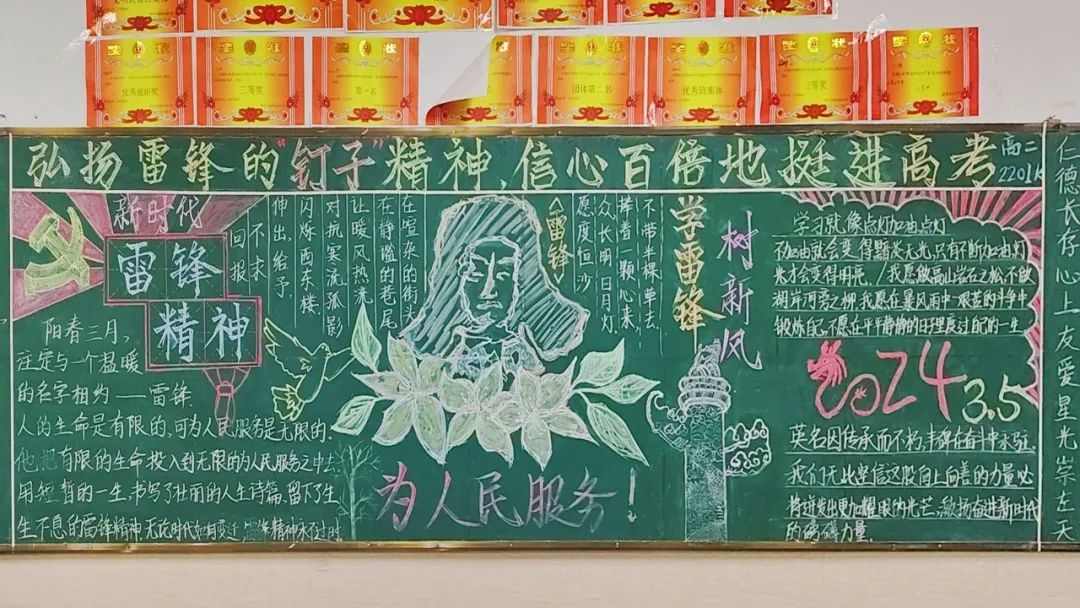 奖状
优秀班组奖
奖状
三等奖
奖状
第一名
奖状
团体第二名
奖状
优秀班集体
奖状
三等奖
奖状
弘扬雷锋的“钉子”精神、信心百倍地挺进高考
高二
2201
新时代
雷锋
精神
阳春三月,
注定与一个温暖
的名字相约——雷锋
人的生命是有限的,可为人民服务是无限的.
他把有限的生命投入到无限的为人民服务之中去.
用短暂的一生书写了壮丽的人生诗篇,留下了生
生不息的雷锋精神,无论时代如何变迁
精神永不过时.
在喧杂的街头
在静谧的巷尾
让暖风热流
对抗寒流孤影
闪烁西东楼
伸出,给予
不求
回报
《雷锋》
不带半棵草去、
捧着一颗心来
众长明日月灯
愿度恒沙
为人民服务!
学雷锋
树新风
学习就像点灯加油点灯
加油就会变得颗发光,只有不断加油灯
光才会变得明亮. 我愿做高山岩石之松,不做
湖岸河旁之柳,我愿在暴风雨中艰苦的斗争中
锻炼自己,不愿在平平静静的日子里度过自己的一生
2024
3.5
英名因传承而不朽,丰碑在奋斗中永驻
我们无比坚信这股向上向善的力量必
将迸发出更加耀眼的光芒,激扬奋进新时代
的磅礴力量.
仁德长存心上友爱星光崇左天